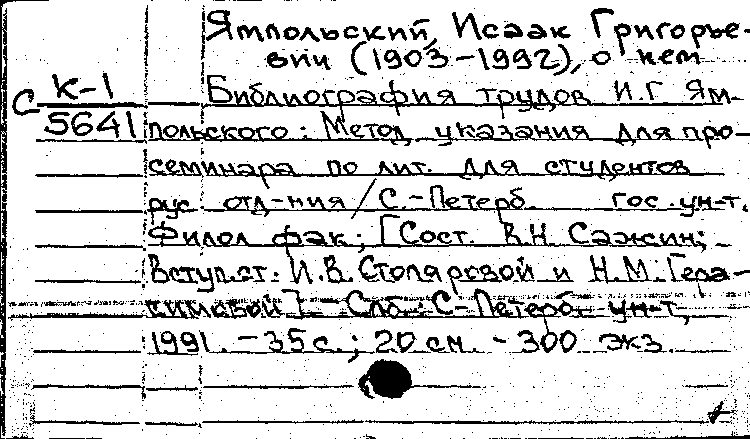 Ямпольский, Исаак Григорье-
вич (1903-1992), о нем
С К-1
5641
Библиография трудов И.Г. Ям-
польского: Метод. указания для про-
семинара по лит. для студентов
рус. отд-ния / С.-Петерб. гос. ун-т.
Филол. фак.; [Сост. В.Н. Сажин;
Вступ. ст. И.В. Столяровой и Н.М. Гера-
кимовой]. - Спб.: С-Петерб. ун-т,
1991. - 35 с.; 20 см. - 300 экз.